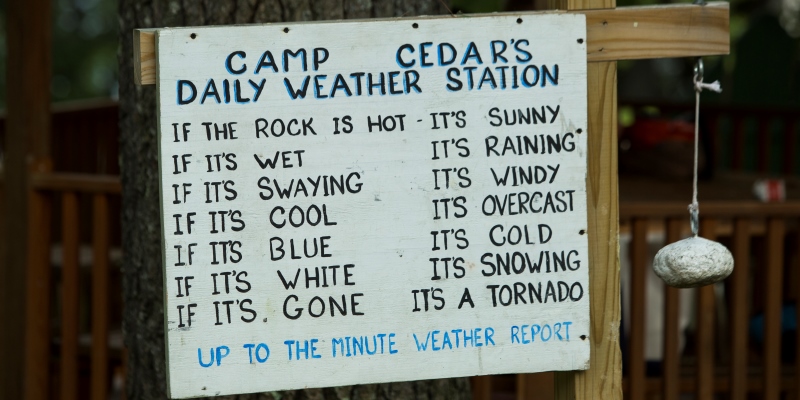 CAMP CEDAR'S
DAILY WEATHER STATION
IF THE ROCK IS HOT - IT'S SUNNY
IF IT'S WET IT'S RAINING
IF IT'S SWAYING IT'S WINDY
IF IT'S COOL IT'S OVERCAST
IF IT'S BLUE IT'S COLD
IF IT'S WHITE IT'S SNOWING
IF IT'S. GONE IT'S A TORNADO
UP TO THE MINUTE WEATHER REPORT